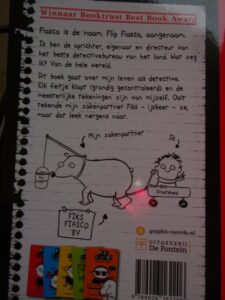 Winnaar Booktrust Best Book Award
Fiasco is de naam. Flip Fiasco, aangenaam.
Ik ben de oprichter, eigenaar en directeur van
het beste detectivebureau van het land. Wat zeg
ik? Van de hele wereld.
Dit boek gaat over mijn leven als detective.
Elk feitje klopt (grondig gecontroleerd) en de
meesterlijke tekeningen zijn van mijzelf. Ooit
tekende mijn zakenpartner Fiks - ijsbeer - ze,
maar dat leek nergens naar.
Mijn zakenpartner
Ik
Grootsheid
FIKS
FIASCO
BV
graphic-novels.nl
UITGEVERIJ
De Fontein